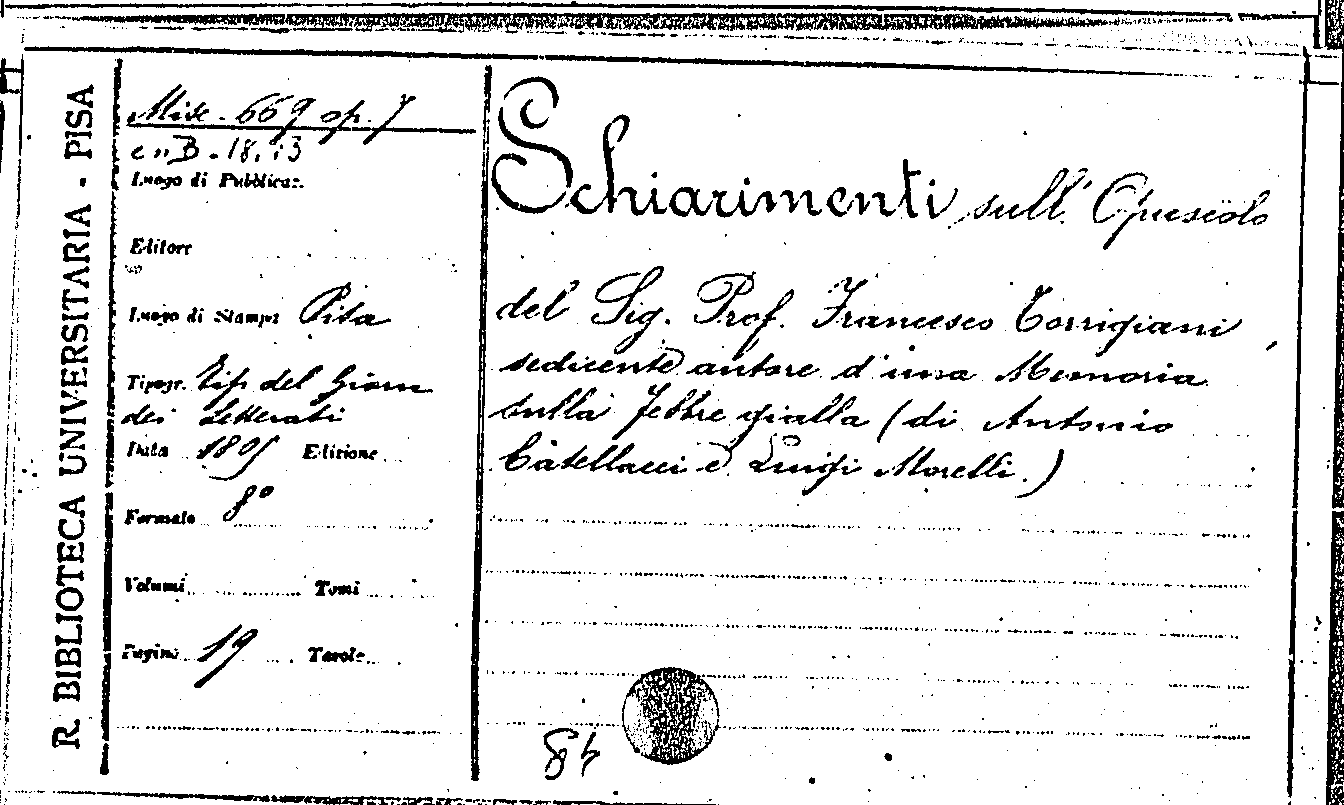 R. BIBLIOTECA UNIVERSITARIA - PISA
Misc. 669 op. 7
e n B. 18. 13
Luogo di Pubblicaz.
Editore
Luogo di Stampa Pisa
Tipogr. Tip del Giorn
dei Letterati
Data 1805 Edizione
Formato 8°
Volumi Tomi
Pagine 19 Tavole
Schiarimenti sull' Opuscolo
del Sig. Prof. Francesco Torrigiani,
sedicente autore d'una Memoria
sulla febbre gialla (di Antonio
Catellacci e Luigi Morelli.)